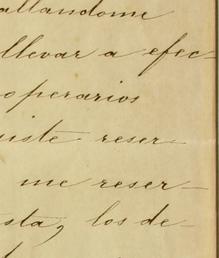 allandome
llevar a efec-
operarios
iste reser-
me reser-
sta, los de-